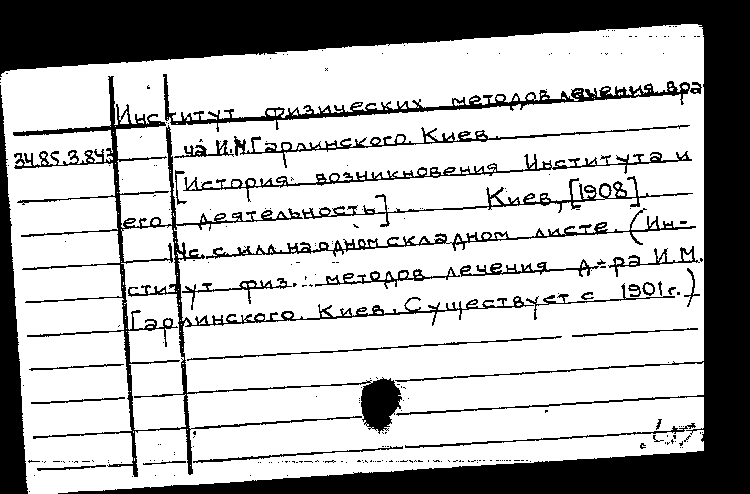 Институт физических методов лечения вра
34.85.3.843 ча И.М.Гарлинского. Киев.
[История возникновения Института и
его деятельность]. Киев, [1908].
14с. с илл. на одном складном листе. (Ин-
ститут физ. методов лечения д-ра И.М.
Гарлинского. Киев. Существует с 1901г.)